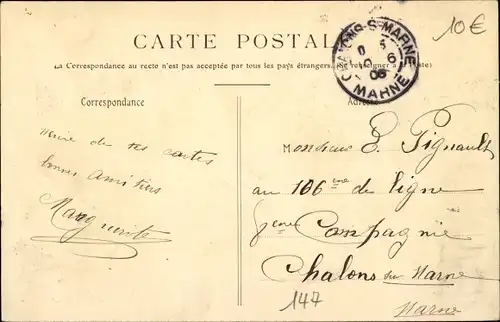 10€
CARTE POSTALE
CHALONS-S-MARNE
MARNE
La Correspondance au recto n'est pas acceptée par tous les pays étrangers. (Se renseigner à la Poste)
Correspondance
Adresse
Merci de tes cartes
bonnes amitiés
Marguerite
Monsieur E. Pignault
au 106ème de ligne
6ème Compagnie
Chalons sur Marne
Marne
147